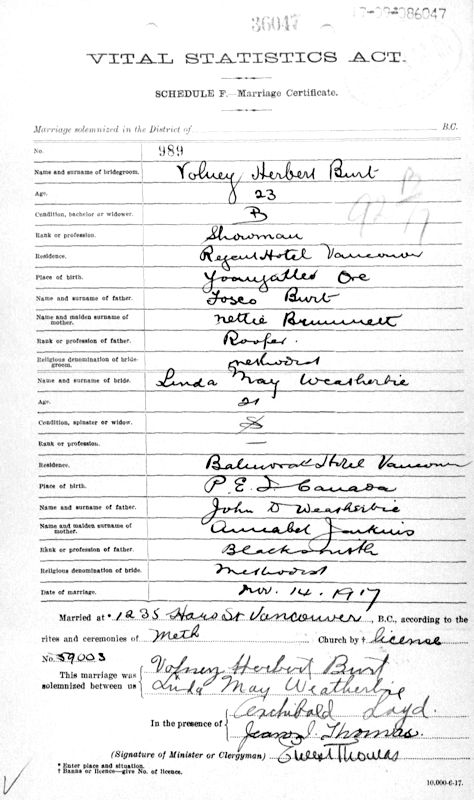 36047
VITAL STATISTICS ACT.
SCHEDULE F.—Marriage Certificate.
Marriage solemnized in the District of B.C.
No. 989
Name and surname of bridegroom. Volney Herbert Burt
Age. 23
Condition, bachelor or widower. B
Rank or profession. Showman
Residence. Regent Hotel Vancouver
Place of birth. Ore
Name and surname of father. Burt
Name and maiden surname of mother. Nettie
Rank or profession of father. Roofer.
Religious denomination of bridegroom. Methodist
Name and surname of bride. Linda May Weatherbie
Age. 21
Condition, spinster or widow. S
Rank or profession. —
Residence. Balmoral Hotel Vancouver
Place of birth. P. E. I Canada
Name and surname of father. John D Weatherbie
Name and maiden surname of mother. Annabel Jenkins
Rank or profession of father. Blacksmith
Religious denomination of bride. Methodist
Date of marriage. Nov. 14. 1917
Married at * 1235 St Vancouver, B.C., according to the
rites and ceremonies of Meth Church by † license
No. 59003
This marriage was solemnized between us
Volney Herbert Burt
Linda May Weatherbie
In the presence of
Archibald Loyd.
Thomas.
(Signature of Minister or Clergyman) Thomas
* Enter place and situation.
† Banns or licence—give No. of licence.
10,000-6-17.